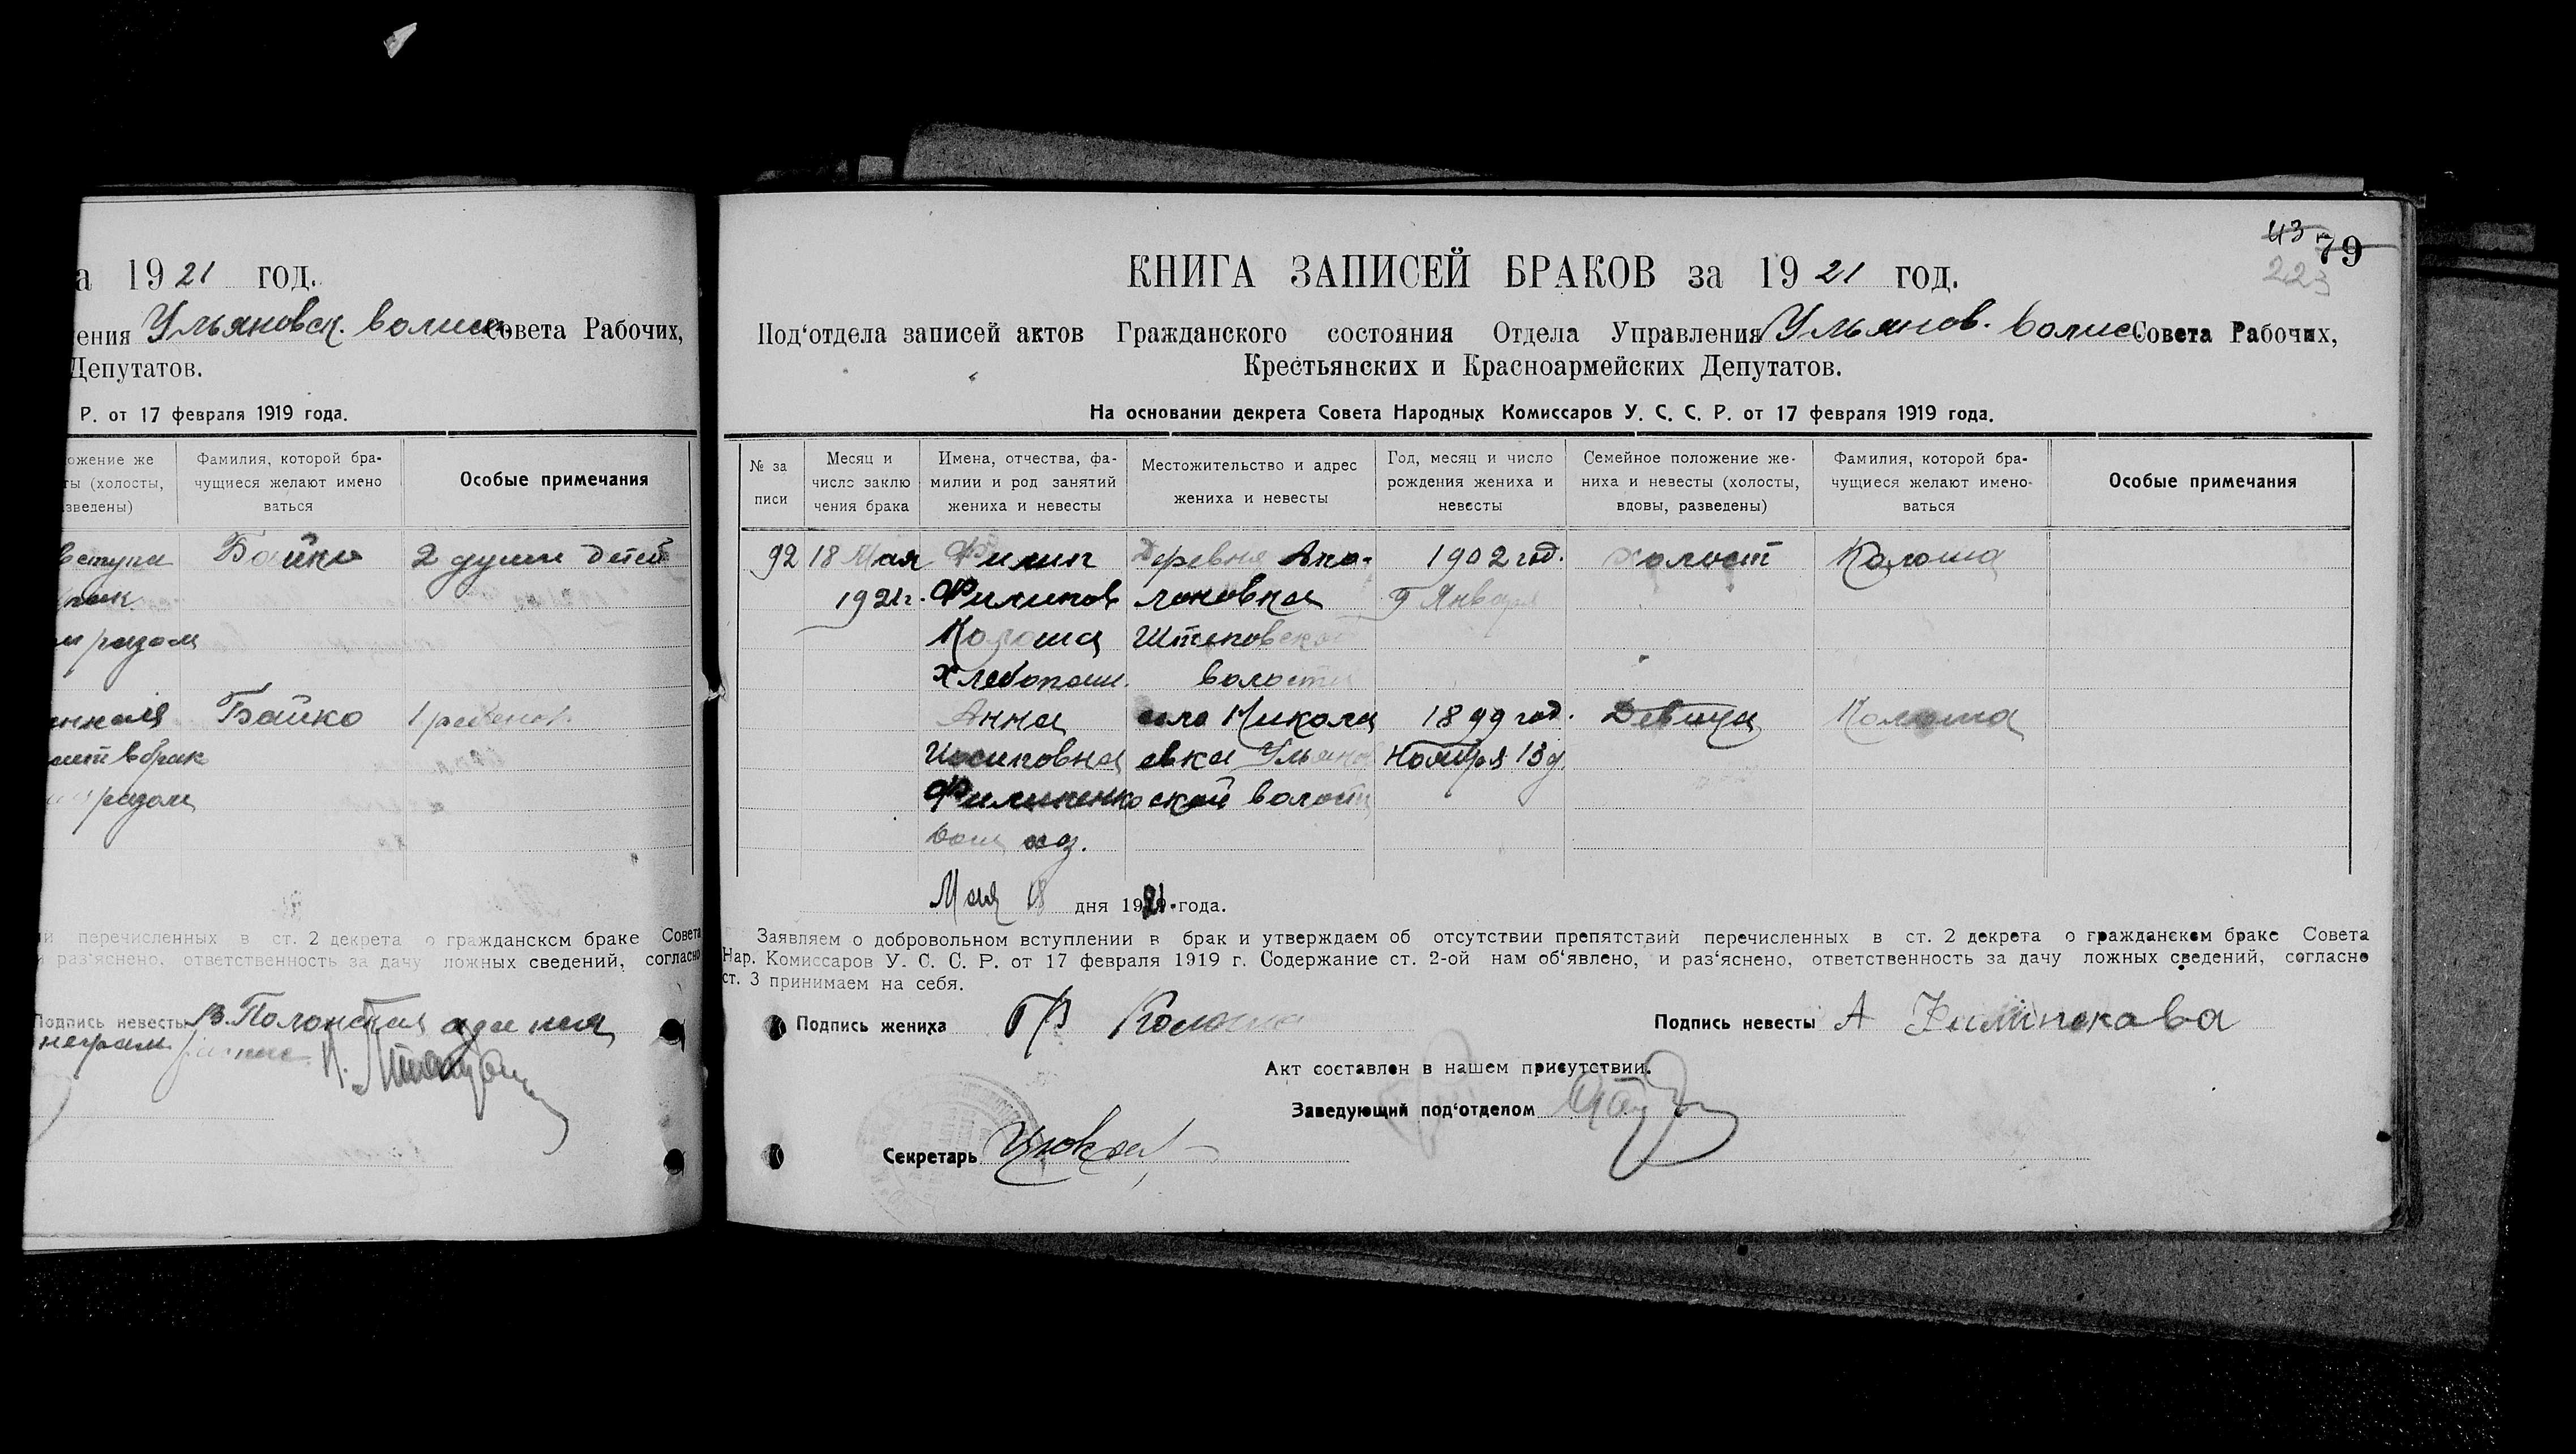 а 1921 год.
ения Ульяновск. волис. Совета Рабочих,
Депутатов.
Р. от 17 февраля 1919 года.
ожение же
ты (холосты,
зведены)
Фамилия, которой бра-
чущиеся желают имено
ваться
Особые примечания
вступи Байко 2 души детей
м разом
Байко 1 ребенок
вбрак
разом
и перечисленных в ст. 2 декрета о гражданском браке Совета
и раз‘яснено, ответственность за дачу ложных сведений, согласно
Подпись невесты В. Полонская
неграм
43 79
223
КНИГА ЗАПИСЕЙ БРАКОВ за 1921 год.
Под‘отдела записей актов Гражданского состояния Отдела Управления Ульянов. волис Совета Рабочих,
Крестьянских и Красноармейских Депутатов.
На основании декрета Совета Народных Комиссаров У. С. С. Р. от 17 февраля 1919 года.
№ за
писи
Месяц и
число заклю
чения брака
Имена, отчества, фа-
милии и род занятий
жениха и невесты
Местожительство и адрес
жениха и невесты
Год, месяц и число
рождения жениха и
невесты
Семейное положение же-
ниха и невесты (холосты,
вдовы, разведены)
Фамилия, которой бра-
чущиеся желают имено-
ваться
Особые примечания
92 18 Мая Филип Деревня Апо- 1902 год. холост Калоша
1921г. Филипов лоновка 9 Января
Калоша Штеповской
Хлебопаш. волости
Анна села Никола 1899 год. Девица Калоша
Иосиповна евка Ульянов Ноября 13 д.
Филипенко ской волости
Мая 18 дня 1921 года.
Заявляем о добровольном вступлении в брак и утверждаем об отсутствии препятствий перечисленных в ст. 2 декрета о гражданском браке Совета
Нар. Комиссаров У. С. С. Р. от 17 февраля 1919 г. Содержание ст. 2-ой нам об‘явлено, и раз‘яснено, ответственность за дачу ложных сведений, согласно
ст. 3 принимаем на себя.
Подпись жениха Ф Колоша Подпись невесты А Филіпскава
Акт составлен в нашем присутствии.
Заведующий под‘отделом
Секретарь